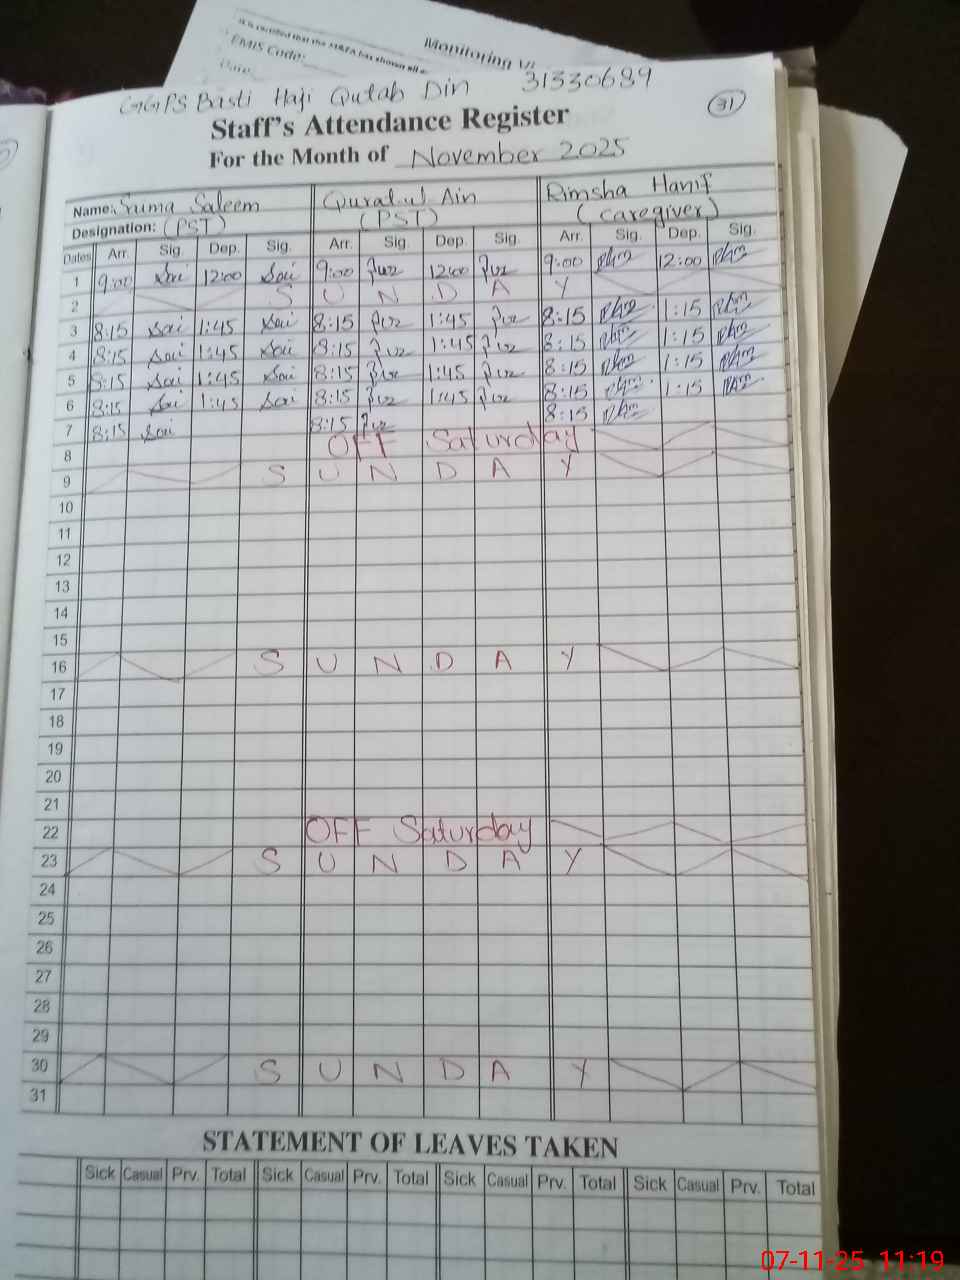 It is certified that the
EMIS Code:
Date:
Monitoring
GGPS Basti Haji Qutab Din 31330689
31
Staff's Attendance Register
For the Month of November 2025
Name: Sruma Saleem Quratul Ain Rimsha Hanif
Designation: (PST) (PST) (Caregiver)
Dates Arr. Sig. Dep. Sig. Arr. Sig. Dep. Sig. Arr. Sig. Dep. Sig.
1 9:00 12:00 9:00 12:00 9:00 12:00
2 S U N D A Y
3 8:15 1:45 8:15 1:45 8:15 1:15
4 8:15 1:45 8:15 1:45 8:15 1:15
5 8:15 1:45 8:15 1:45 8:15 1:15
6 8:15 1:45 8:15 1:45 8:15 1:15
7 8:15 8:15 8:15
8 OFF Saturday
9 S U N D A Y
10
11
12
13
14
15
16 S U N D A Y
17
18
19
20
21
22 OFF Saturday
23 S U N D A Y
24
25
26
27
28
29
30 S U N D A Y
31
STATEMENT OF LEAVES TAKEN
Sick Casual Prv. Total Sick Casual Prv. Total Sick Casual Prv. Total Sick Casual Prv. Total
07-11-25 11:19